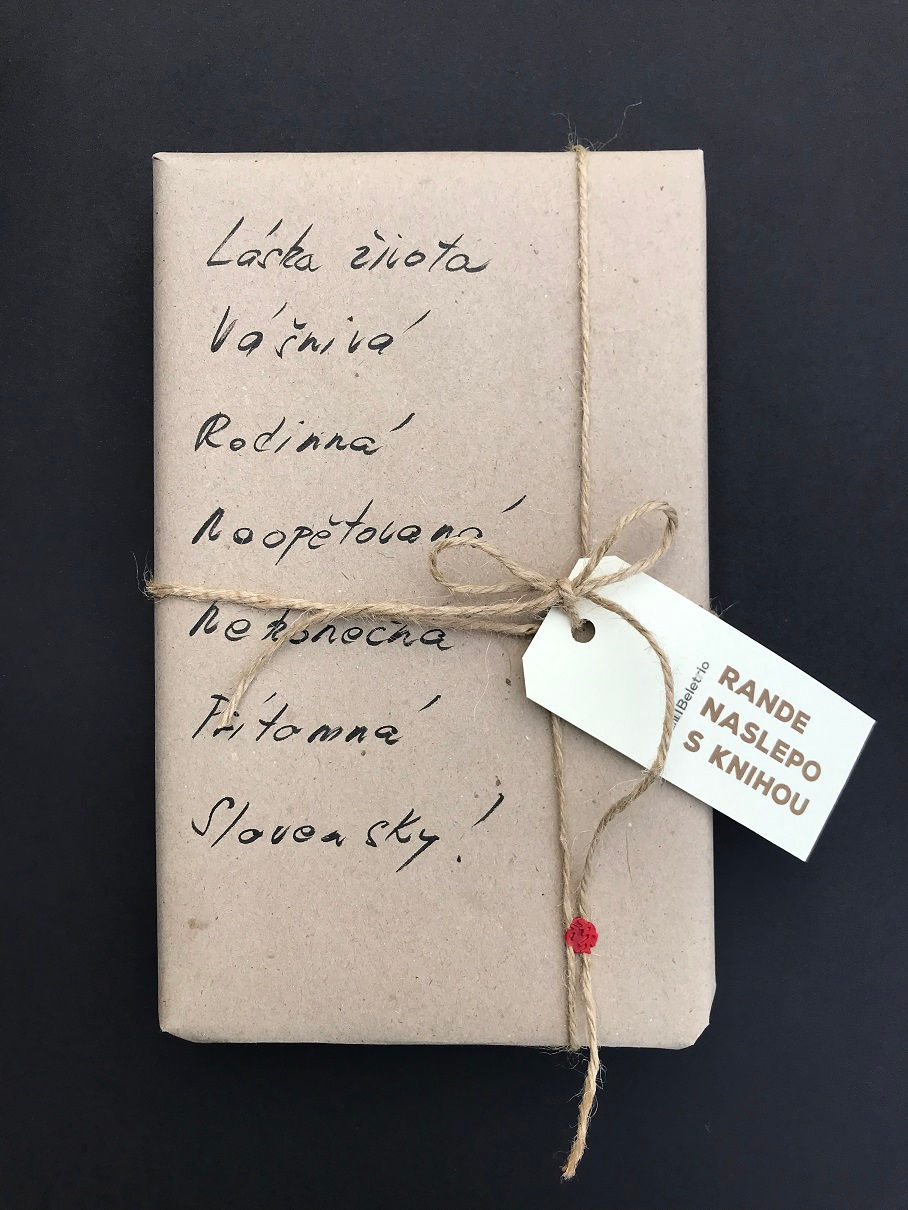 Láska života
Vášnivá
Rodinná
Neopětovaná
Nekonečná
Přítomná
Slovensky!
Beletrio
RANDE
NASLEPO
S KNIHOU